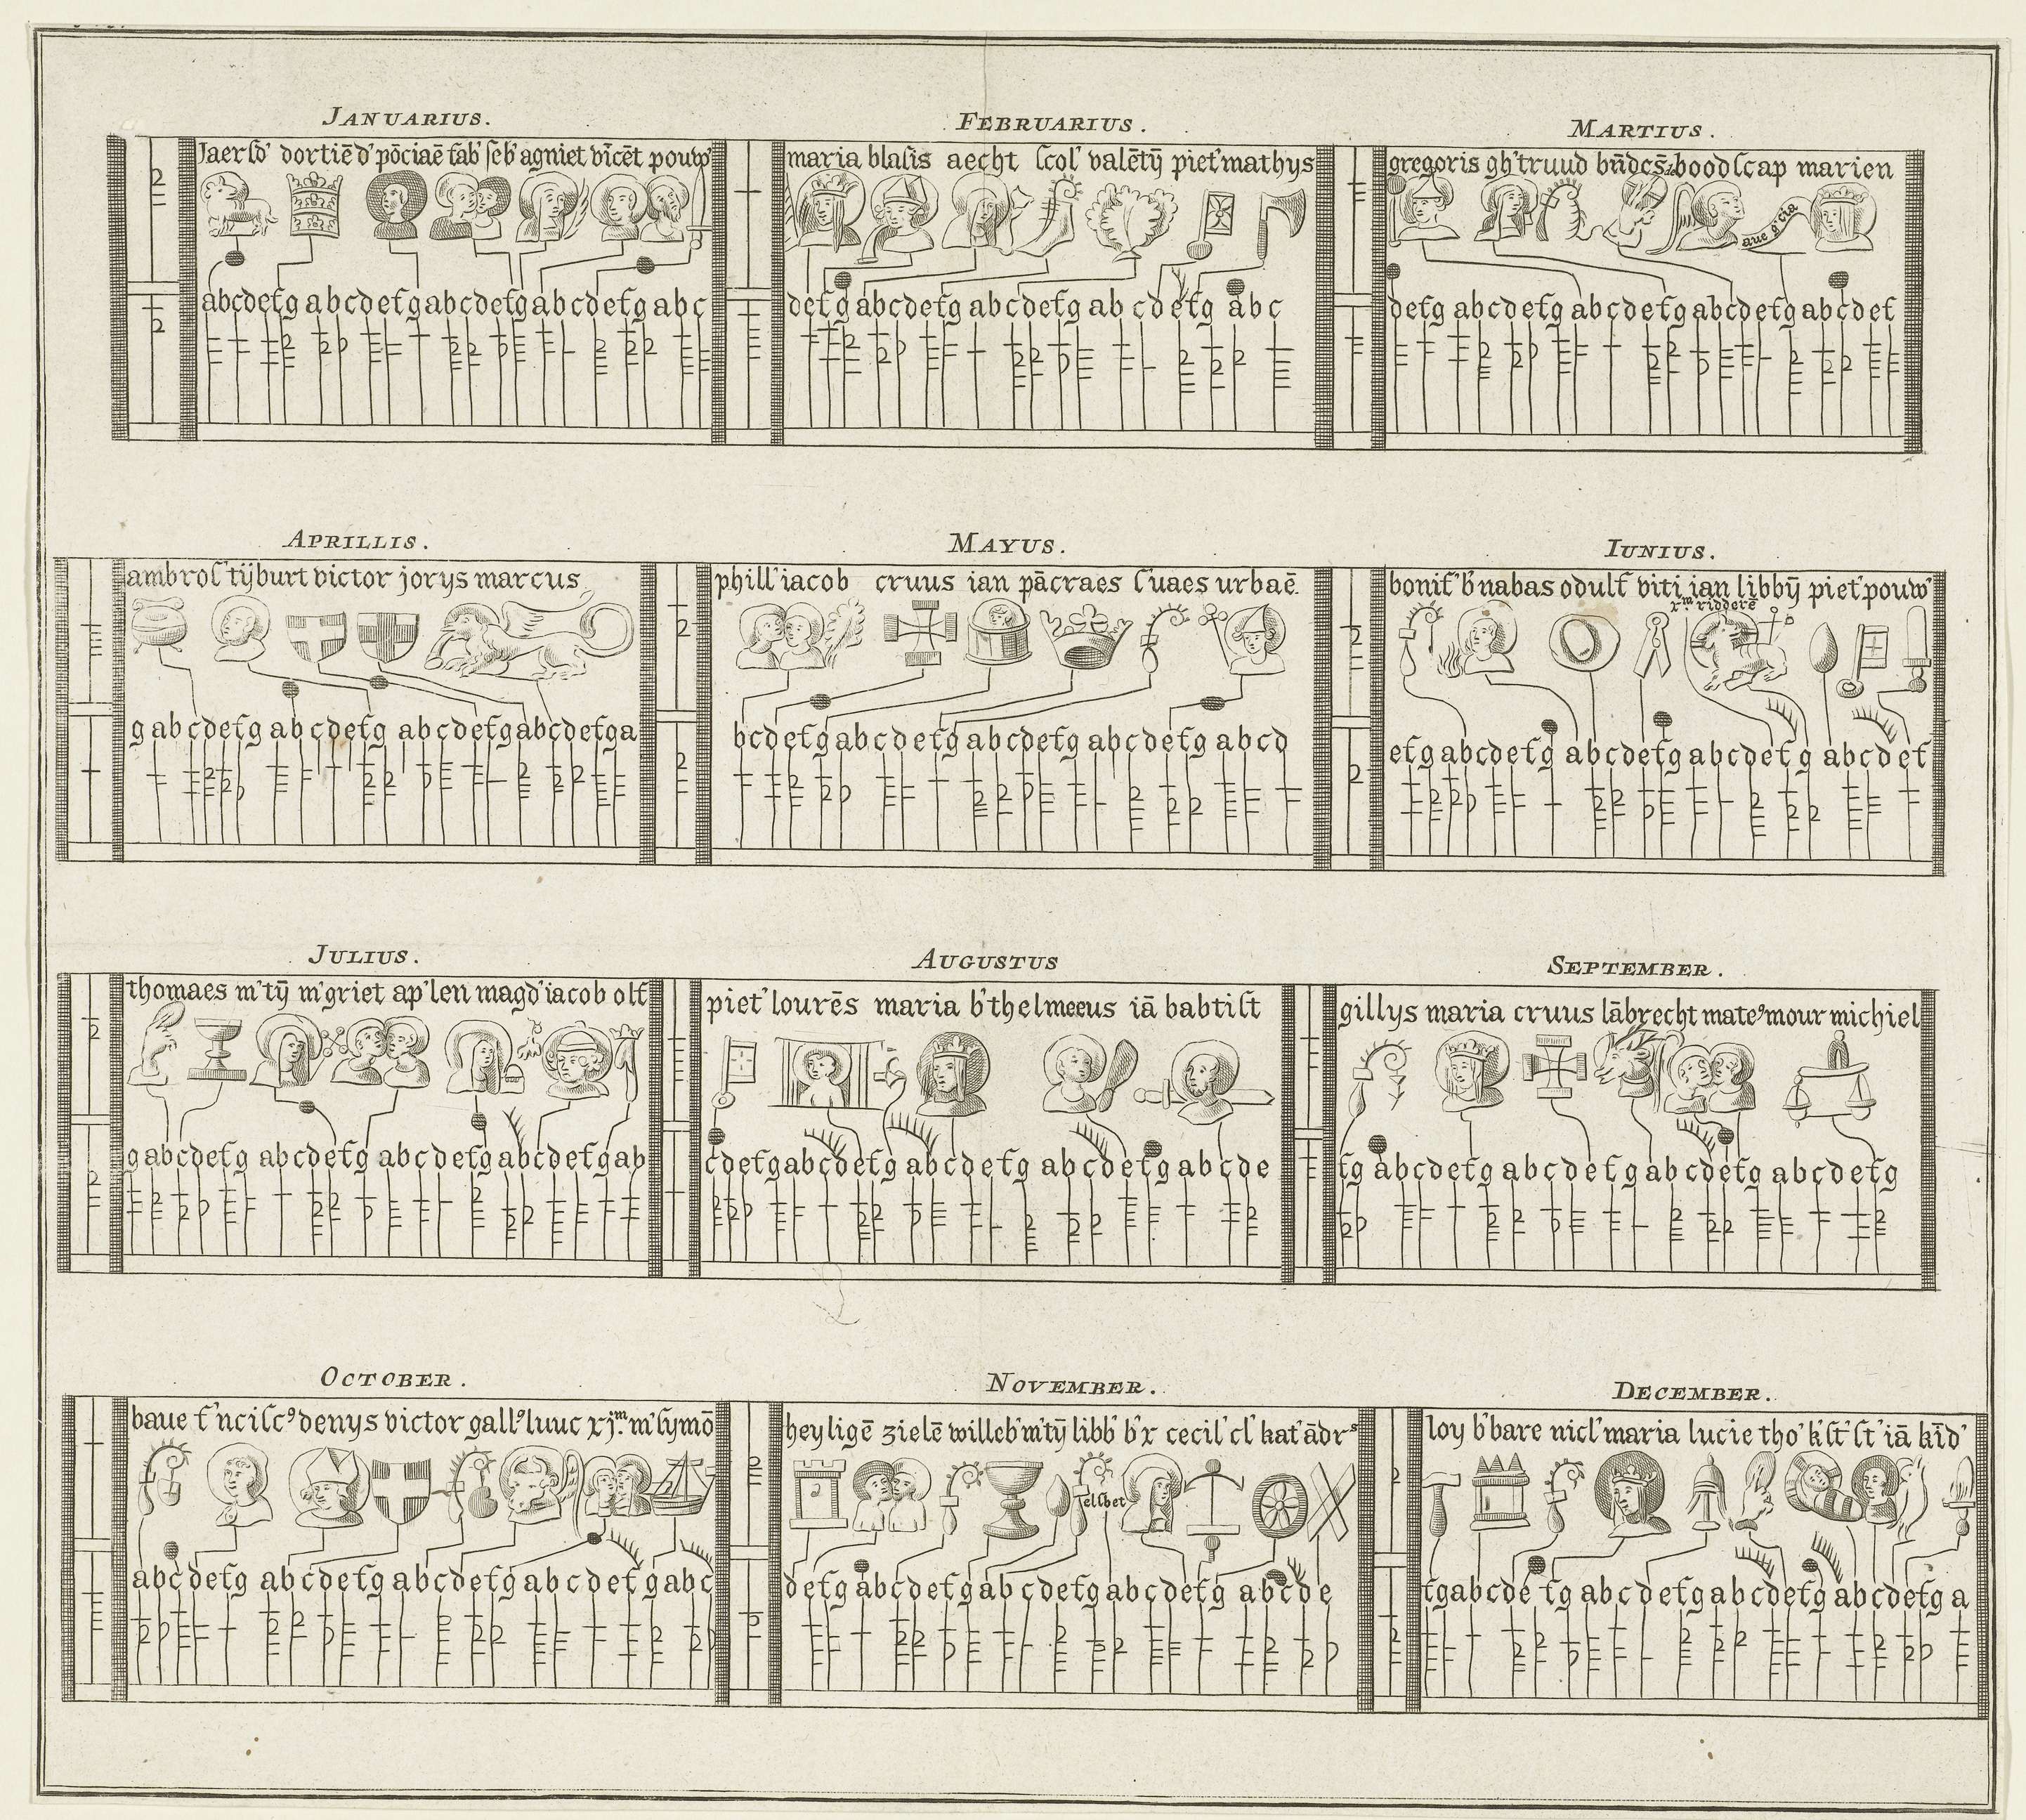 JANUARIUS.
Jaersd' dortiēd' pōciaē fab' seb' agniet vīcēt pouw'
abcdefg abcdefg abcdefg abcdefg abc
FEBRUARIUS.
maria blasis aecht scol' valētÿ piet' mathys
defg abcdefg abcdefg ab cdefg abc
MARTIUS.
gregoris gh'truud boodscap marien
aue g'cia
defg abcdefg abcdefg abcdefg abcdef
APRILLIS.
ambros' tÿburt victor jorys marcus
g abcdefg abcdefg abcdefg abcdefg a
MAYUS.
phill' iacob cruus ian pācraes s'uaes urbaē.
bcdefg abcdefg abcdefg abcdefg abcd
IUNIUS.
bonif' b'nabas odulf viti ian libbÿ piet' pouw'
xm ridderē
efg abcdefg abcdefg abcdefg abcdef
JULIUS.
thomaes m'tÿ m'griet ap'len magd' iacob olf
g abcdefg abcdefg abcdefg abcdefg ab
AUGUSTUS
piet' lourēs maria b'thelmeeus iā babtist
cdefg abcdefg abcdefg abcdefg abcde
SEPTEMBER.
gillys maria cruus lābrecht mate9 mour michiel
fg abcdefg abcdefg abcdefg abcdefg
OCTOBER.
baue f'ncisc9 denys victor gall9 luuc xjm. m' symō
abcdefg abcdefg abcdefg abcdefg abc
NOVEMBER.
heyligē zielē willeb' m'tÿ libb' b'x cecil' cl' kat' ādrs
elsbet
defg abcdefg abcdefg abcdefg abcde
DECEMBER.
loy b'bare nicl' maria lucie tho' k'st' st' iā kīd'
fg abcdefg abcdefg abcdefg abcdefg a